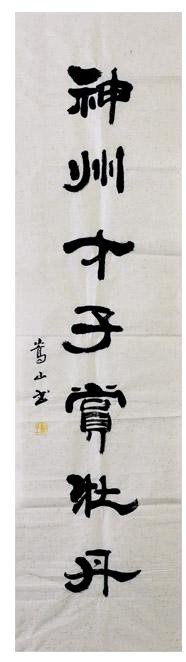 神州才子賞牡丹
嵩山书